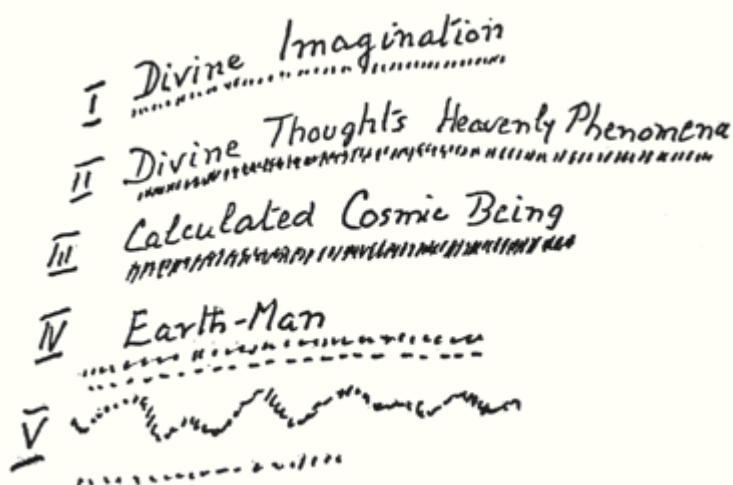 I Divine Imagination
II Divine Thoughts Heavenly Phenomena
III Calculated Cosmic Being
IV Earth-Man
V